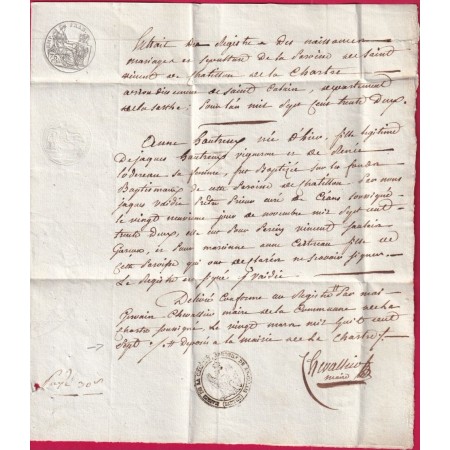 Extrait des Registres des naissances
mariages et sepulture de la Paroisse de Saint
vincent de chatillon de la Chartre
arrondissement de Saint Calais, departement
de la sarthe; Pour l'an mil Sept Cent trente deux.
Anne Gautreux née d'hier, fille legitime
De jaques Gautreux vigneron et de Renée
sa femme, fut Baptizée sur les fonds
Baptismaux de cette Paroisse de chatillon Par nous
jaques vaidie Prêtre Prieur curé de soussigné
le vingt neuvieme jour de novembre mil Sept cent
trente deux, elle eut Pour Parrin vincent
et Pour marraine anne fille de
cette Paroisse qui ont declarés ne scavoir signer.
Le Registre est signé Vaidie
Delivré conforme au Registre Par moi
Chevallier maire de la Commune de la
chartre soussigné Le vingt mars mil huit cent
Sept. depose a la mairie de la Chartre
Chevallier
maire